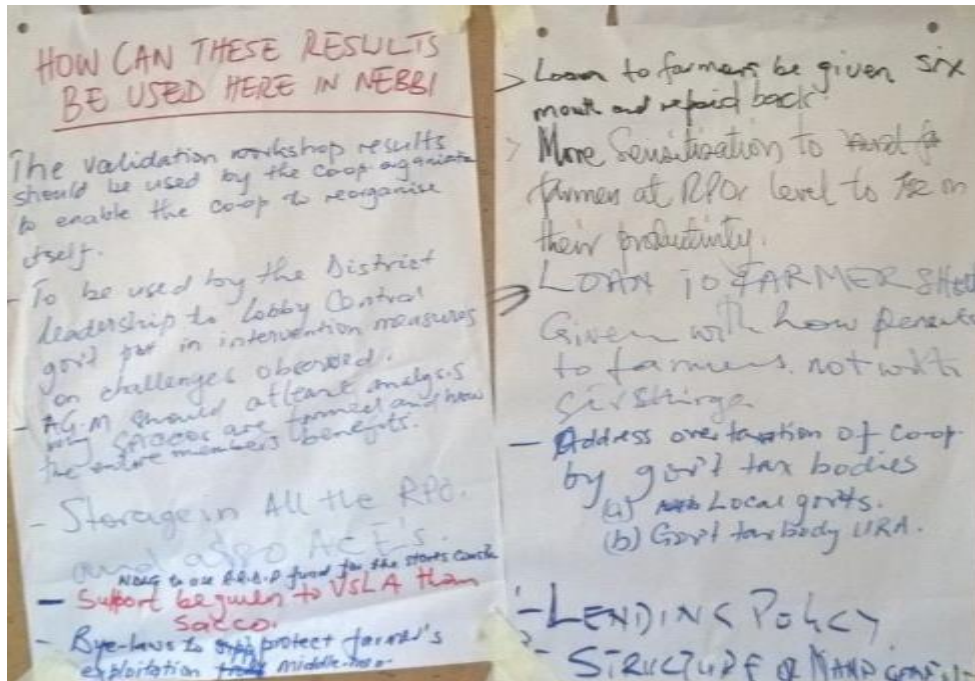 HOW CAN THESE RESULTS
BE USED HERE IN NEBBI
The validation workshop results
should be used by the coop
to enable the co-op to reorganise
itself.
- To be used by the District
leadership to Lobby Central
gov't put in intervention measures
on challenges observed.
- A.G.M should atleast analysis
why SACCOS are formed and how
the entire members benefits.
- Storage in All the RPO.
and also ACE's.
to use fund for the
- Support be given to VSLA than
Sacco.
- Bye-laws to protect farmer's
exploitation middle-men.
> Loan to farmers be given six
month and repaid back.
> More Sensitization to
farmers at RPO level to on
their productivity.
LOAN TO FARMER
Given with how
to farmers. not with
- Address over taxation of co-op
by gov't tax bodies
(a) Local gov'ts.
(b) Gov't tax body URA.
- LENDING POLICY
- STRUCTURE